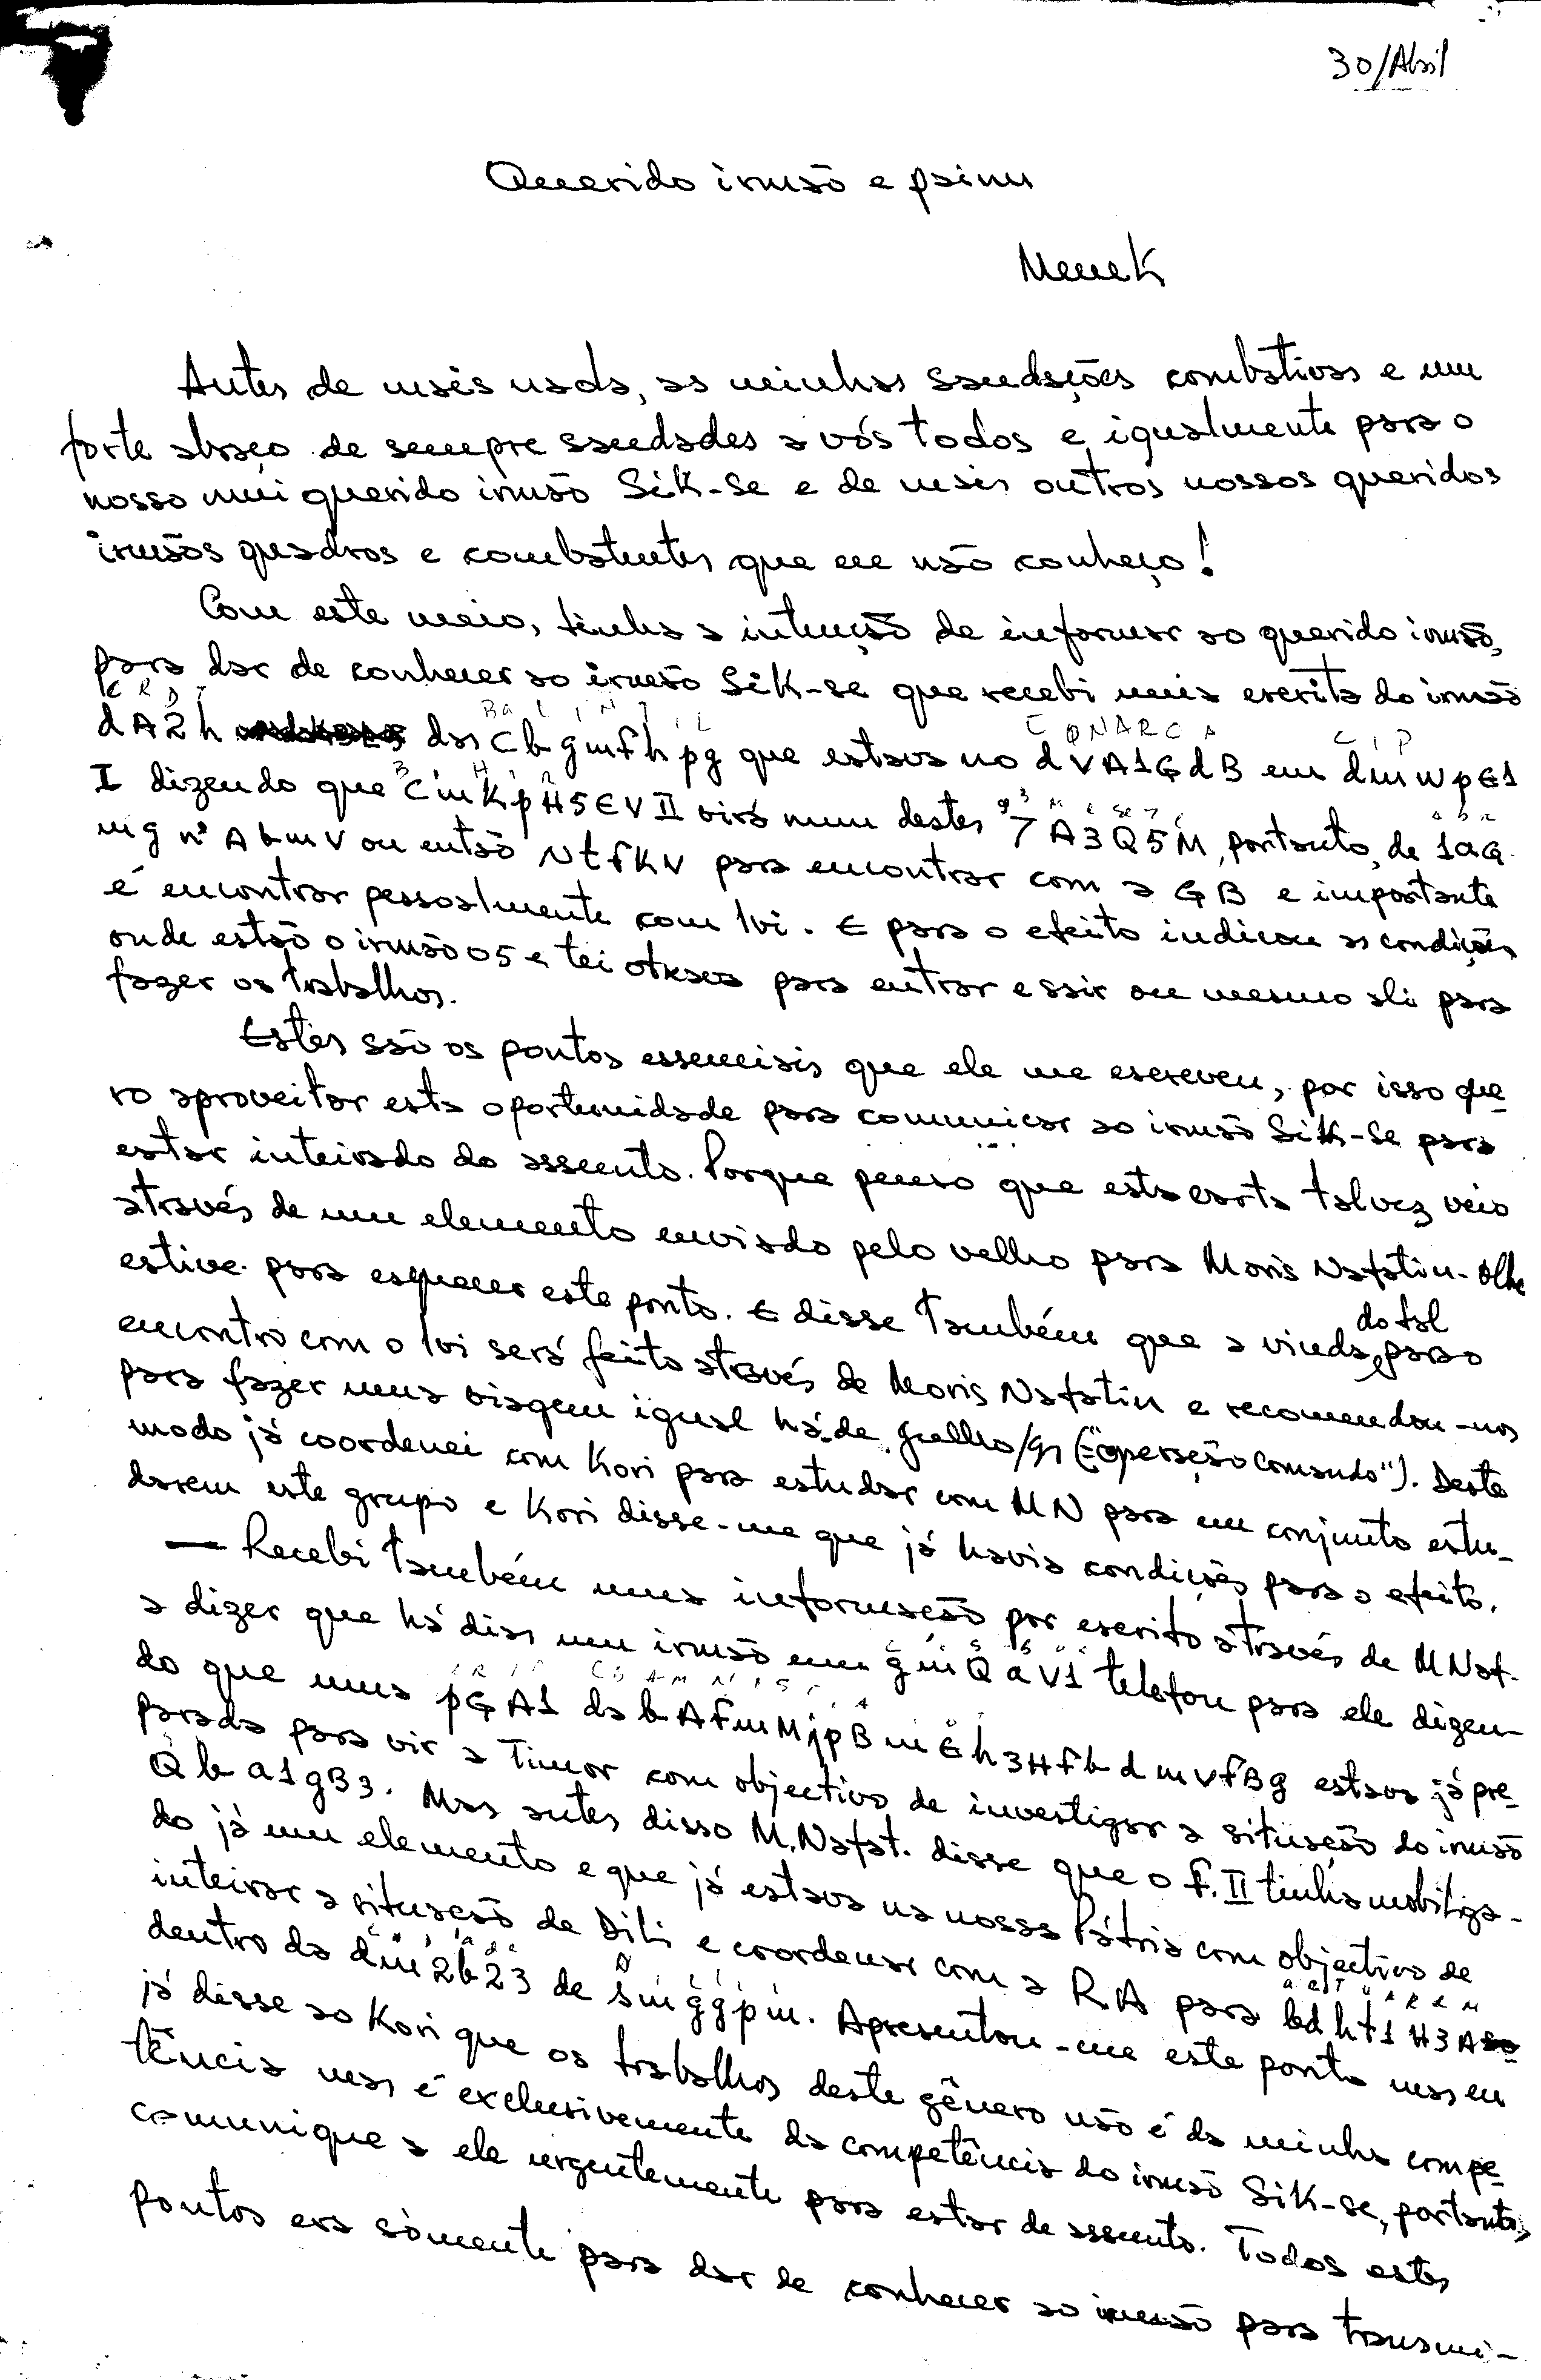 30/Abril
Querido irmão e painu
Meuek
Antes de mais nada, as minhas saudações combativas e um
forte abraço de sempre saudades a vós todos e igualmente para o
nosso mui querido irmão Sik-Se e de mais outros nossos queridos
irmãos quadros e combatentes que eu não conheço!
Com este meio, tinha a intenção de informar ao querido irmão,
para dar de conhecer ao irmão Sik-se que recebi uma escrita do irmão
dA2h das Cbgmfhpg que estava no dVA1GdB em dmwpE1
I dizendo que CmKpH5EVII virá num destes 7A3Q5M, portanto, de 1aG
mg nº AbmV ou então NtfKV para encontrar com a GB e importante
é encontrar pessoalmente com lvi. E para o efeito indicou as condições
onde estão o irmão 05 e tei para entrar e sair ou mesmo ali para
fazer os trabalhos.
Estes são os pontos essenciais que ele me escreveu, por isso que
ro aproveitar esta oportunidade para comunicar ao irmão Sik-Se para
estar inteirado do assunto. Porque penso que esta carta talvez veio
através de um elemento enviado pelo velho para Moris Nafatin. Olhe
estive para esquecer este ponto. E disse também que a vinda do tal para o
encontro com o lvi será feito através de Moris Nafatin e recomendou-nos
para fazer uma viagem igual há de Julho/91 ("operação Comando"). Deste
modo já coordenei com Kori para estudar com MN para em conjunto estu-
darem este grupo e Kori disse-me que já havia condições para o efeito.
— Recebi também uma informação por escrito através de MNaf.
a dizer que há dias um irmão em gmQaV1 telefon para ele dizen-
do que uma pGA1 da bAfmMjpBmEh3HfbdmVfBg estava já pre-
parada para vir a Timor com objectivo de investigar a situação do irmão
Qba1gB3. Mas antes disso M.Nafat. disse que o F.II tinha mobiliza-
do já um elemento e que já estava na nossa Pátria com objectivo de
inteirar a situação de Dili e coordenar com a R.A para bdht1H3A
dentro da dm2b23 de Smggpm. Apresentou-me este ponto mas eu
já disse ao Kori que os trabalhos deste gênero não é da minha compe-
tência mas é exclusivamente da competência do irmão Sik-se, portanto,
comunique a ele urgentemente para estar de assunto. Todos estes
pontos era sòmente para dar de conhecer ao irmão para transmi-